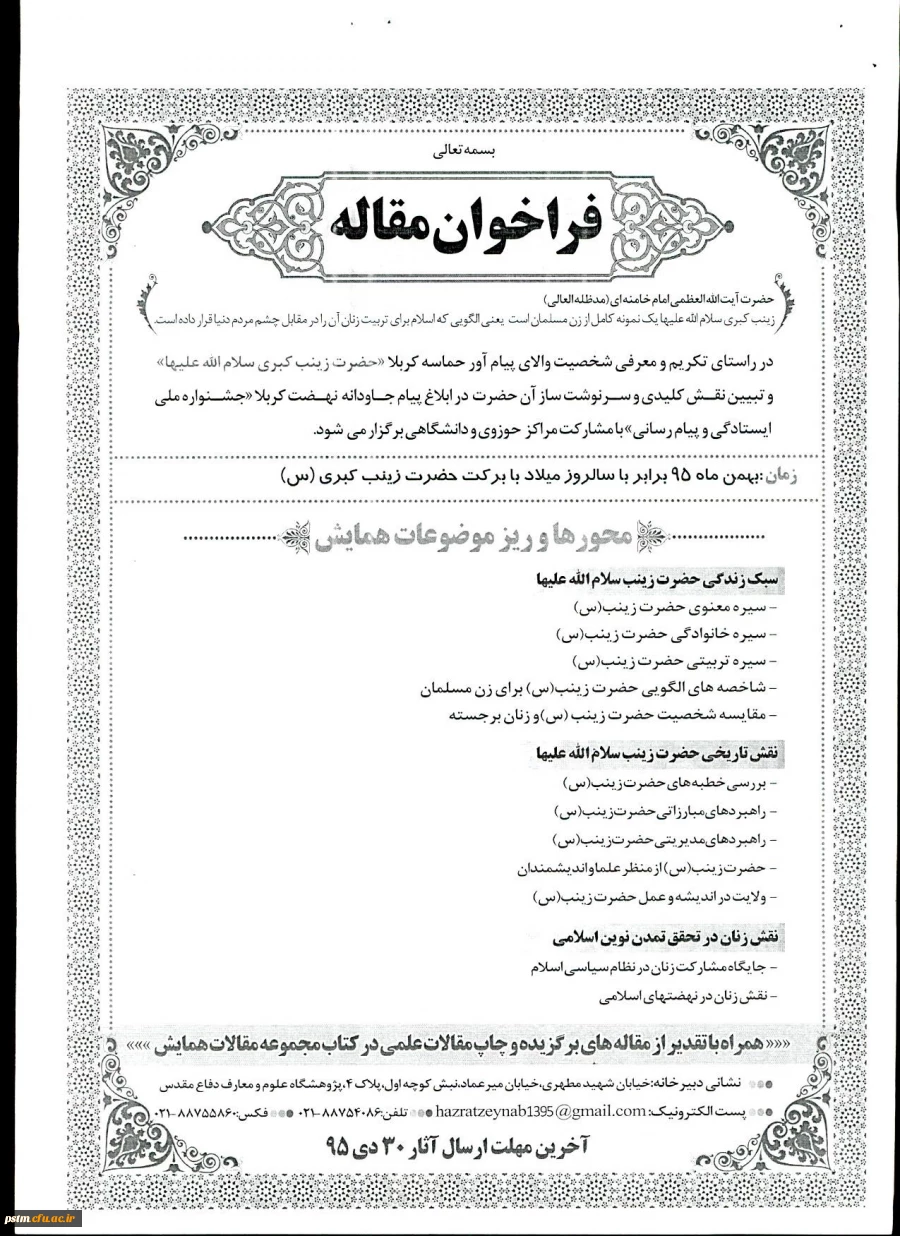 بسمه تعالی
فراخوان مقاله
حضرت آیت الله العظمی امام خامنه ای (مدظله العالی)
زینب کبری سلام الله علیها یک نمونه کامل از زن مسلمان است یعنی الگویی که اسلام برای تربیت زنان آن را در مقابل چشم مردم دنیا قرار داده است.
در راستای تکریم و معرفی شخصیت والای پیام آور حماسه کربلا «حضرت زینب کبری سلام الله علیها»
و تبیین نقش کلیدی و سرنوشت ساز آن حضرت در ابلاغ پیام جاودانه نهضت کربلا «جشنواره ملی
ایستادگی و پیام رسانی» با مشارکت مراکز حوزوی و دانشگاهی برگزار می شود.
زمان: بهمن ماه ۹۵ برابر با سالروز میلاد با برکت حضرت زینب کبری (س)
محورها و ریز موضوعات همایش
سبک زندگی حضرت زینب سلام الله علیها
- سیره معنوی حضرت زینب(س)
- سیره خانوادگی حضرت زینب(س)
- سیره تربیتی حضرت زینب(س)
- شاخصه های الگویی حضرت زینب(س) برای زن مسلمان
- مقایسه شخصیت حضرت زینب (س)و زنان برجسته
نقش تاریخی حضرت زینب سلام الله علیها
- بررسی خطبه های حضرت زینب(س)
- راهبردهای مبارزاتی حضرت زینب(س)
- راهبردهای مدیریتی حضرت زینب(س)
- حضرت زینب(س) از منظر علما و اندیشمندان
- ولایت در اندیشه و عمل حضرت زینب(س)
نقش زنان در تحقق تمدن نوین اسلامی
- جایگاه مشارکت زنان در نظام سیاسی اسلام
- نقش زنان در نهضتهای اسلامی
««« همراه با تقدیر از مقاله های برگزیده و چاپ مقالات علمی در کتاب مجموعه مقالات همایش »»»
نشانی دبیرخانه: خیابان شهید مطهری، خیابان میرعماد، نبش کوچه اول، پلاک ۴، پژوهشگاه علوم و معارف دفاع مقدس
پست الکترونیک: hazratzeynab1395@gmail.com تلفن: ۸۸۷۵۴۰۸۶-۰۲۱ فکس: ۸۸۷۵۵۸۶۰-۰۲۱
آخرین مهلت ارسال آثار ۳۰ دی ۹۵
pstm.cfu.ac.ir